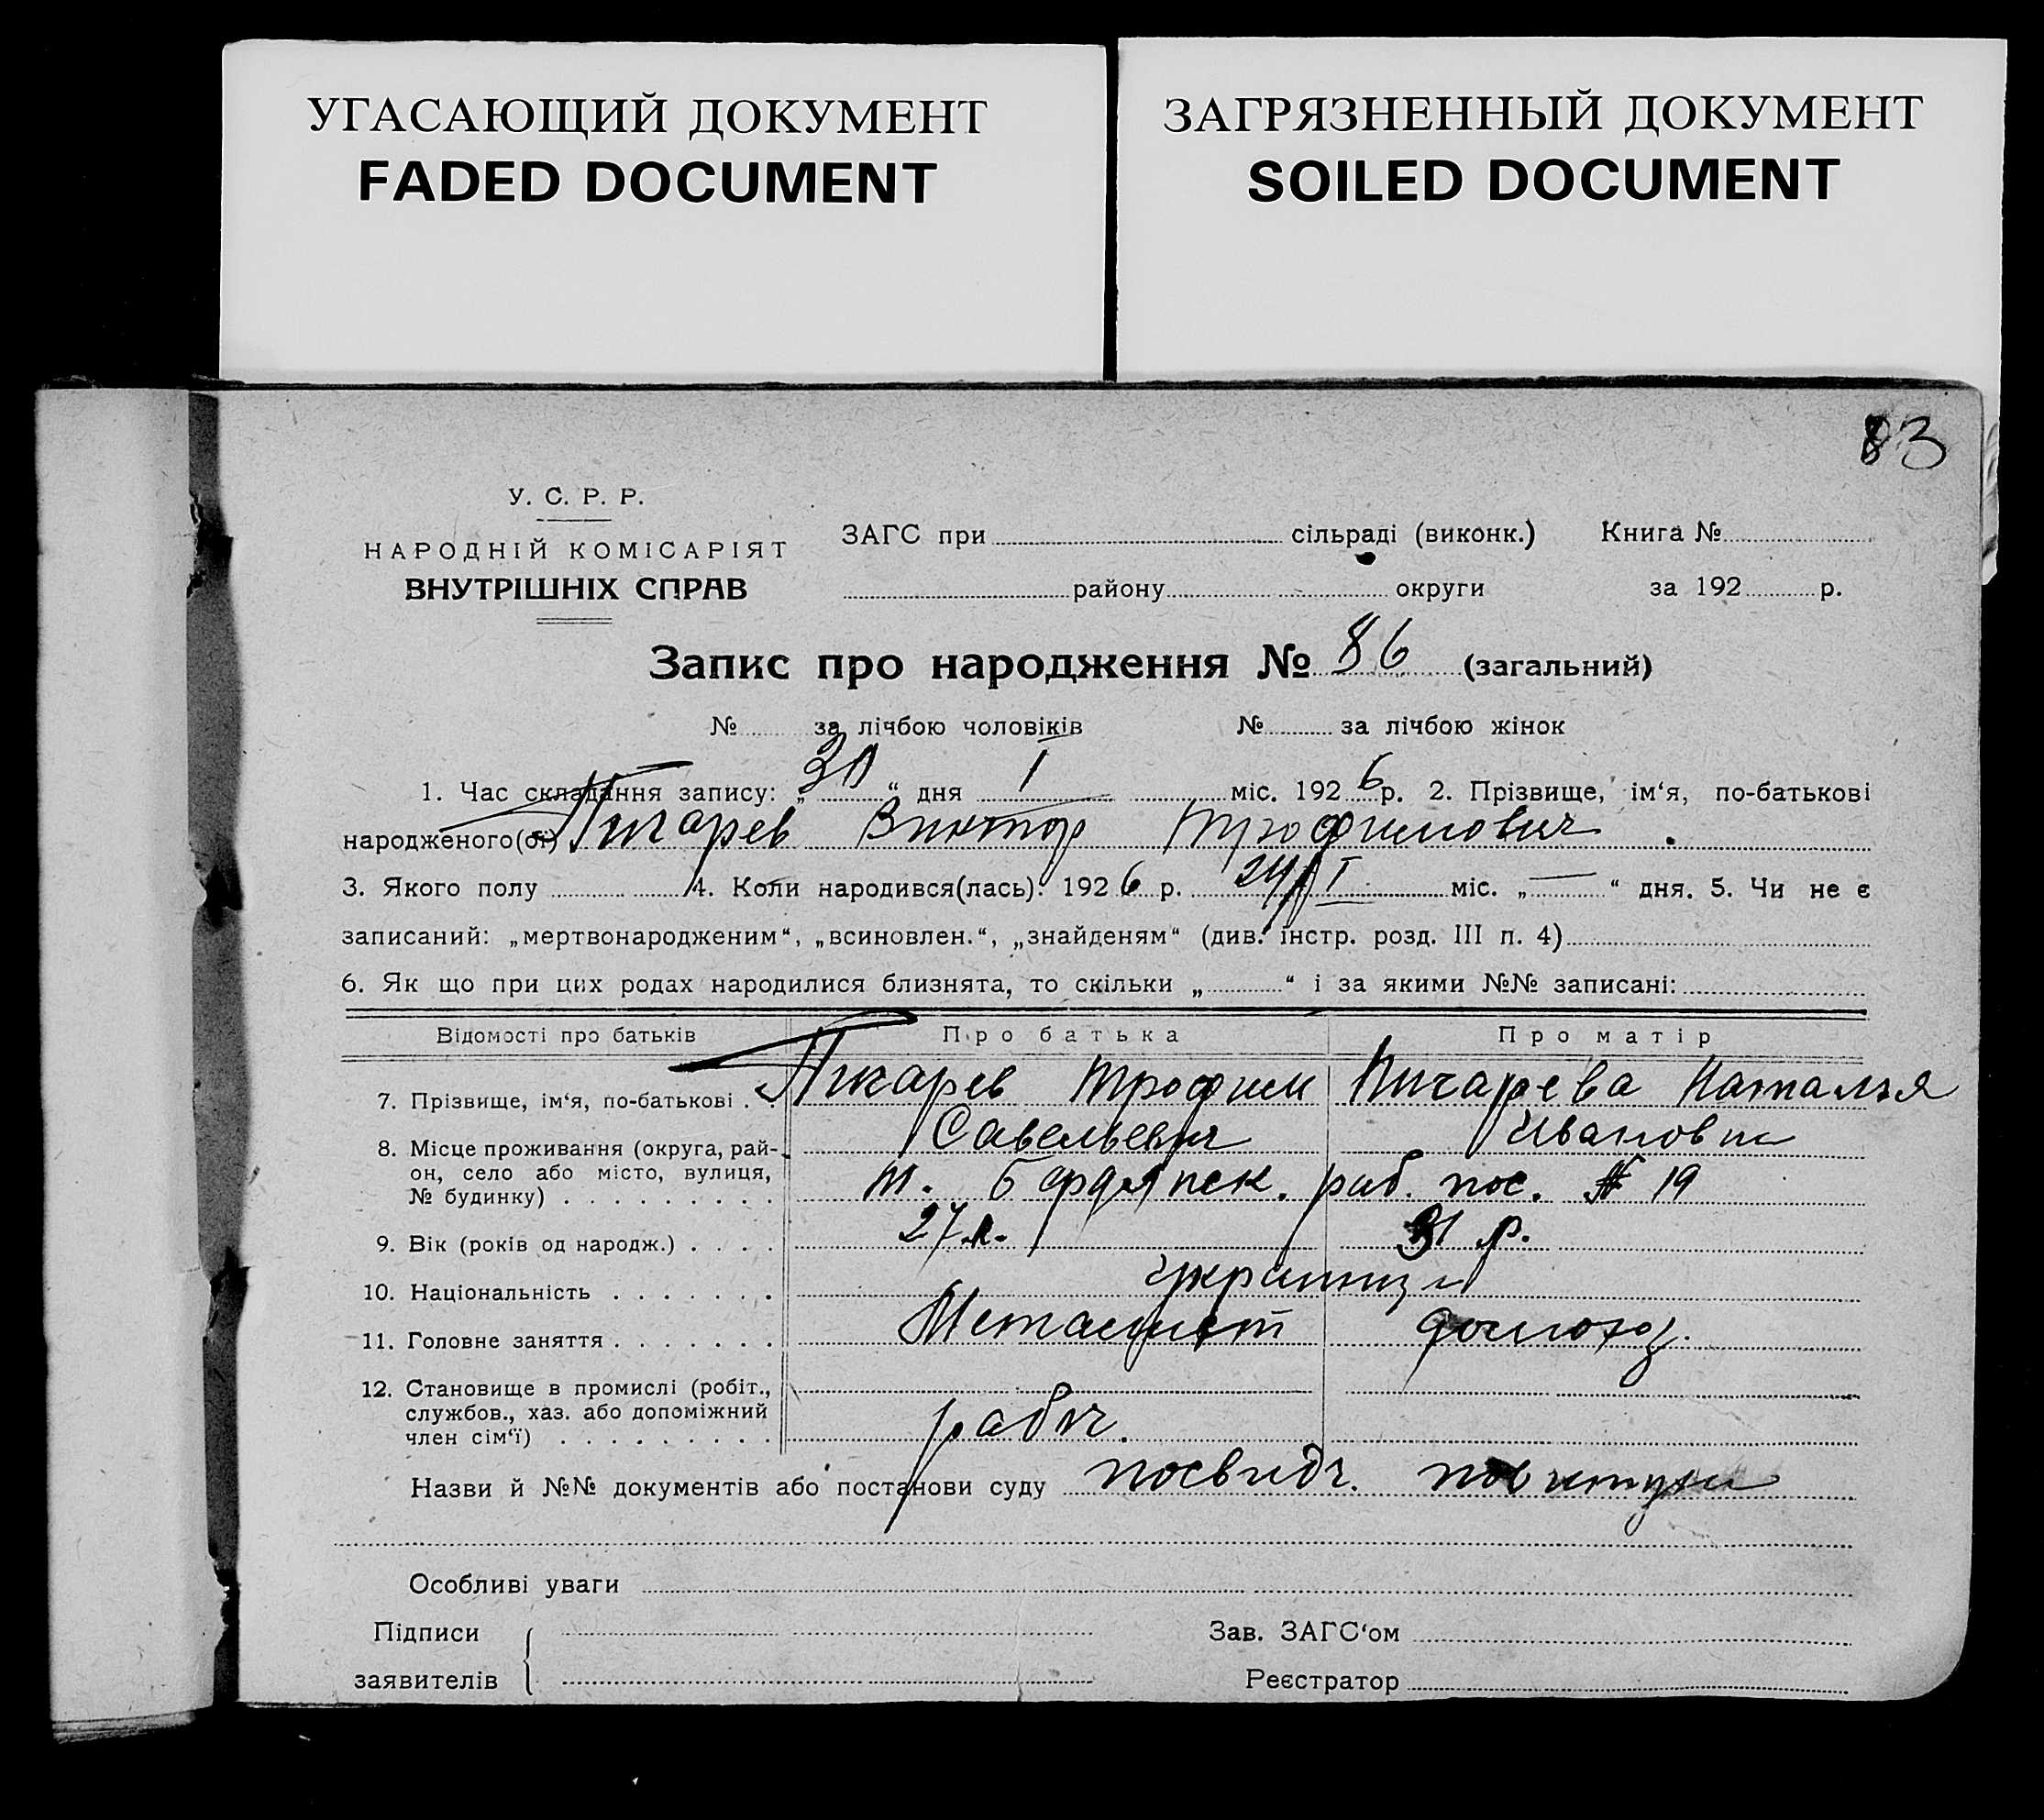 УГАСАЮЩИЙ ДОКУМЕНТ
FADED DOCUMENT
ЗАГРЯЗНЕННЫЙ ДОКУМЕНТ
SOILED DOCUMENT
83
У. С. Р. Р.
НАРОДНІЙ КОМІСАРІЯТ
ВНУТРІШНІХ СПРАВ
ЗАГС при сільраді (виконк.) Книга №
району округи за 192 р.
Запис про народження № 86 (загальний)
№ за лічбою чоловіків № за лічбою жінок
1. Час складання запису: „30“ дня I міс. 1926 р. 2. Прізвище, ім‘я, по-батькові
народженого(ої) Пигарев Виктор Трофимович
3. Якого полу 4. Коли народився(лась): 1926 р. 24/I міс. „—“ дня. 5. Чи не є
записаний: „мертвонародженим“, „всиновлен.“, „знайденям“ (див. інстр. розд. III п. 4)
6. Як що при цих родах народилися близнята, то скільки „ “ і за якими №№ записані:
Відомості про батьків Про батька Про матір
7. Прізвище, ім‘я, по-батькові . . Пигарев Трофим Пигарева Наталья
Савельевич Ивановна
8. Місце проживання (округа, рай-
он, село або місто, вулиця,
№ будинку) . . . . . . . . . м. Бердянск. раб. пос. № 19
9. Вік (років од народж.) . . . . 27 л. 31 р.
10. Національність . . . . . . . українці
11. Головне заняття . . . . . . . Металіст домогосп.
12. Становище в промислі (робіт.,
службов., хаз. або допоміжний
член сім‘ї) . . . . . . . . . рабоч.
Назви й №№ документів або постанови суду посвидч. повитухи
Особливі уваги
Підписи
заявителів
Зав. ЗАГС‘ом
Реєстратор